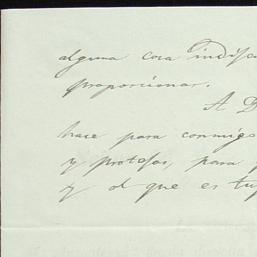 alguna cosa indis
proporcionar.
A D
hace para conmigo
y protesos, para
y al que es tu